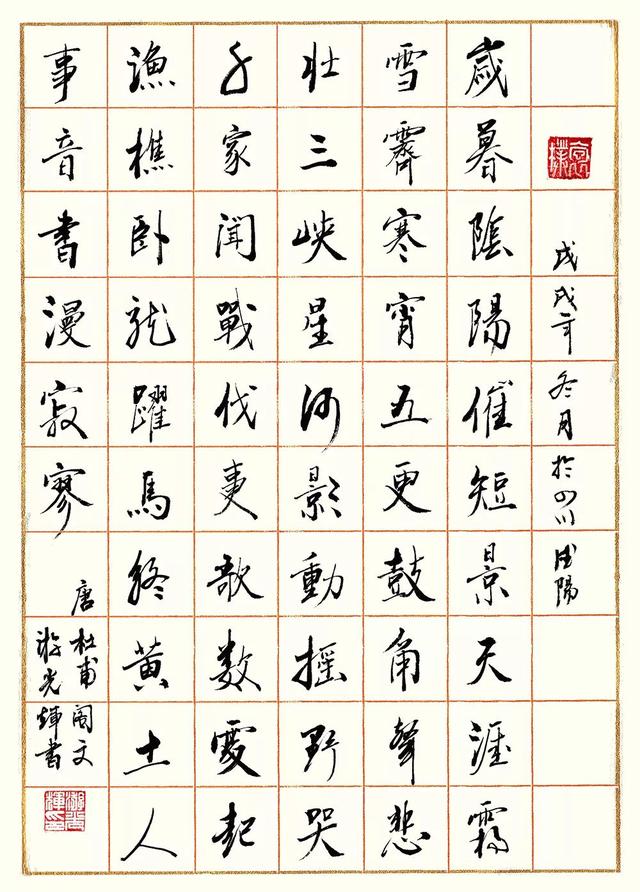 戊戌年冬月於四川德陽
歲暮陰陽催短景天涯霜
雪霽寒宵五更鼓角聲悲
壯三峽星河影動搖野哭
千家聞戰伐夷歌數處起
漁樵臥龍躍馬終黃土人
事音書漫寂寥
唐杜甫閣夜
游光輝書